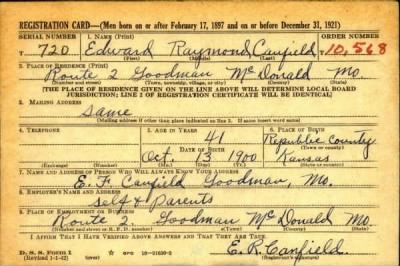 REGISTRATION CARD—(Men born on or after February 17, 1897 and on or before December 31, 1921)
SERIAL NUMBER 1. NAME (Print) ORDER NUMBER
T 720 Edward Raymond Canfield T10,568
(First) (Middle) (Last)
2. PLACE OF RESIDENCE (Print)
Route 2 Goodman McDonald Mo.
(Number and street) (Town, township, village, or city) (County) (State)
[THE PLACE OF RESIDENCE GIVEN ON THE LINE ABOVE WILL DETERMINE LOCAL BOARD
JURISDICTION; LINE 2 OF REGISTRATION CERTIFICATE WILL BE IDENTICAL]
3. MAILING ADDRESS
Same
[Mailing address if other than place indicated on line 2. If same insert word same]
4. TELEPHONE 5. AGE IN YEARS 6. PLACE OF BIRTH
41 Republic County
DATE OF BIRTH (Town or county)
Oct. 13 1900 Kansas
(Exchange) (Number) (Mo.) (Day) (Yr.) (State or country)
7. NAME AND ADDRESS OF PERSON WHO WILL ALWAYS KNOW YOUR ADDRESS
E. F. Canfield Goodman, Mo.
8. EMPLOYER'S NAME AND ADDRESS
Self & Parents
9. PLACE OF EMPLOYMENT OR BUSINESS
Route 2 Goodman McDonald Mo.
(Number and street or R. F. D. number) (Town) (County) (State)
I AFFIRM THAT I HAVE VERIFIED ABOVE ANSWERS AND THAT THEY ARE TRUE.
D. S. S. Form 1 E. R. Canfield
(Revised 1-1-42) (Registrant's signature)